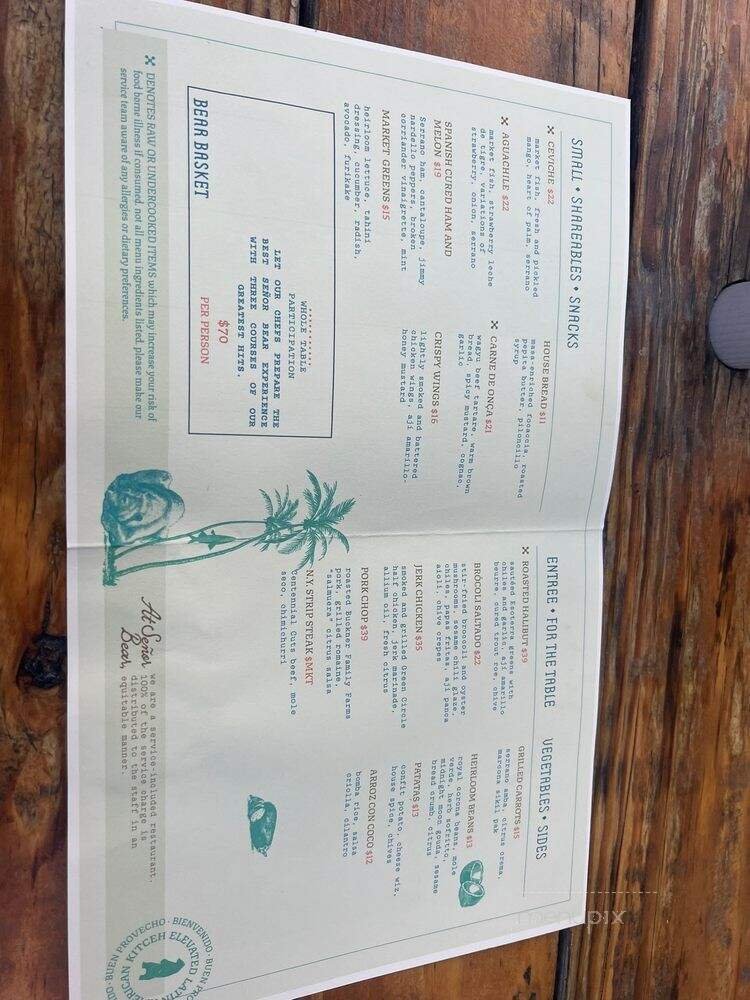 SMALL • SHAREABLES • SNACKS
CEVICHE $22
market fish, fresh and pickled
mango, heart of palm, serrano
AGUACHILE $22
market fish, strawberry leche
de tigre, variations of
strawberry, onion, serrano
SPANISH CURED HAM AND
MELON $19
Serrano ham, cantaloupe, jimmy
nardello peppers, broken
corriander vinaigrette, mint
MARKET GREENS $15
heirloom lettuce, tahini
dressing, cucumber, radish,
avocado, furikake
HOUSE BREAD $11
masa-enriched focaccia, roasted
pepita butter, piloncillo
syrup
CARNE DE ONÇA $21
wagyu beef tartare, warm brown
bread, spicy mustard, cognac,
garlic
CRISPY WINGS $16
lightly smoked and battered
chicken wings, ají amarillo-
honey mustard
BEAR BASKET
WHOLE TABLE
PARTICIPATION
LET OUR CHEFS PREPARE THE
BEST SEÑOR BEAR EXPERIENCE
WITH THREE COURSES OF OUR
GREATEST HITS.
$70
PER PERSON
DENOTES RAW OR UNDERCOOKED ITEMS which may increase your risk of
food borne illness if consumed. not all menu ingredients listed. please make our
service team aware of any allergies or dietary preferences.
ENTREE • FOR THE TABLE
ROASTED HALIBUT $39
sautéed Esoterra greens with
chiles and garlic, ají amarillo
beurre, cured trout roe, chive
BRÓCOLI SALTADO $22
stir-fried broccoli and oyster
mushrooms, sesame chili glaze,
chiles, papas fritas, ají panca
aioli, chive crepes
JERK CHICKEN $35
smoked and grilled Green Circle
half chicken, jerk marinade,
allium oil, fresh citrus
PORK CHOP $39
roasted Buckner Family Farms
pork, grilled romaine,
"salmuera" citrus salsa
N.Y. STRIP STEAK $MKT
Centennial Cuts beef, mole
seco, chimichurri
VEGETABLES • SIDES
GRILLED CARROTS $15
serrano amba, citrus crema,
marcona sikil pak
HEIRLOOM BEANS $13
royal corona beans, mole
verde, herb sofritto,
midnight moon gouda, sesame
bread crumb, citrus
PATATAS $13
confit potato, cheese wiz,
house spice, chives
ARROZ CON COCO $12
bomba rice, salsa
criolla, cilantro
At Señor
Bear, we are a service-included restaurant.
100% of the service charge is
distributed to the staff in an
equitable manner.
BUEN PROVECHO • BIENVENIDO • BUEN
AMERICAN KITCEH ELEVATED LATIN
menupix